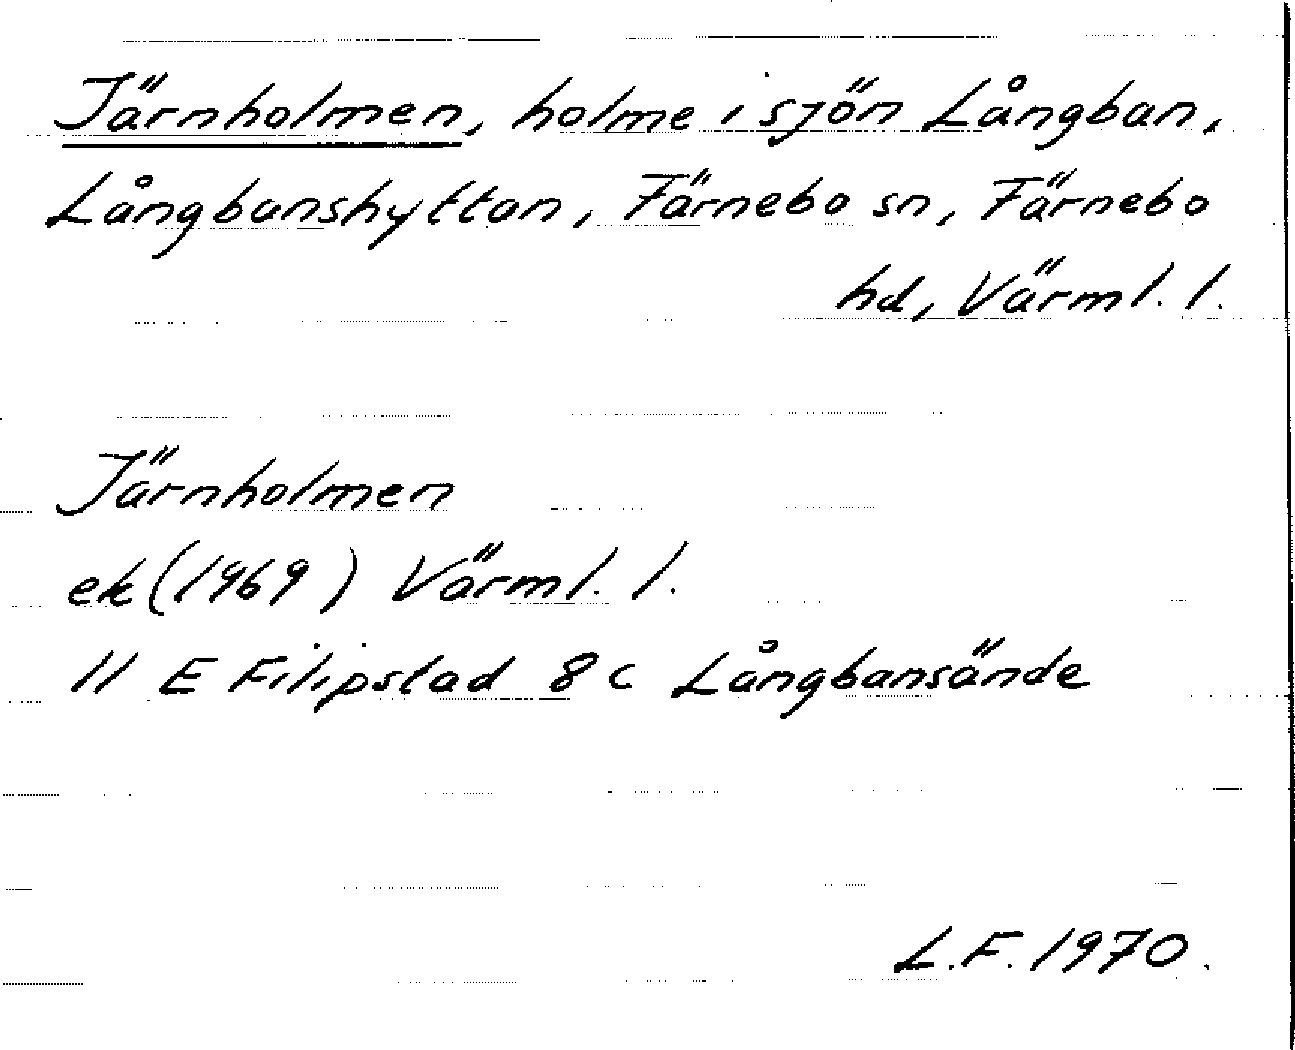 Järnholmen, holme i sjön Långban,
Långbanshyttan, Färnebo sn, Färnebo
hd, Värml. l.
Järnholmen
ek (1969) Värml. l.
11 E Filipstad 8 c Långbansände
L.F. 1970.